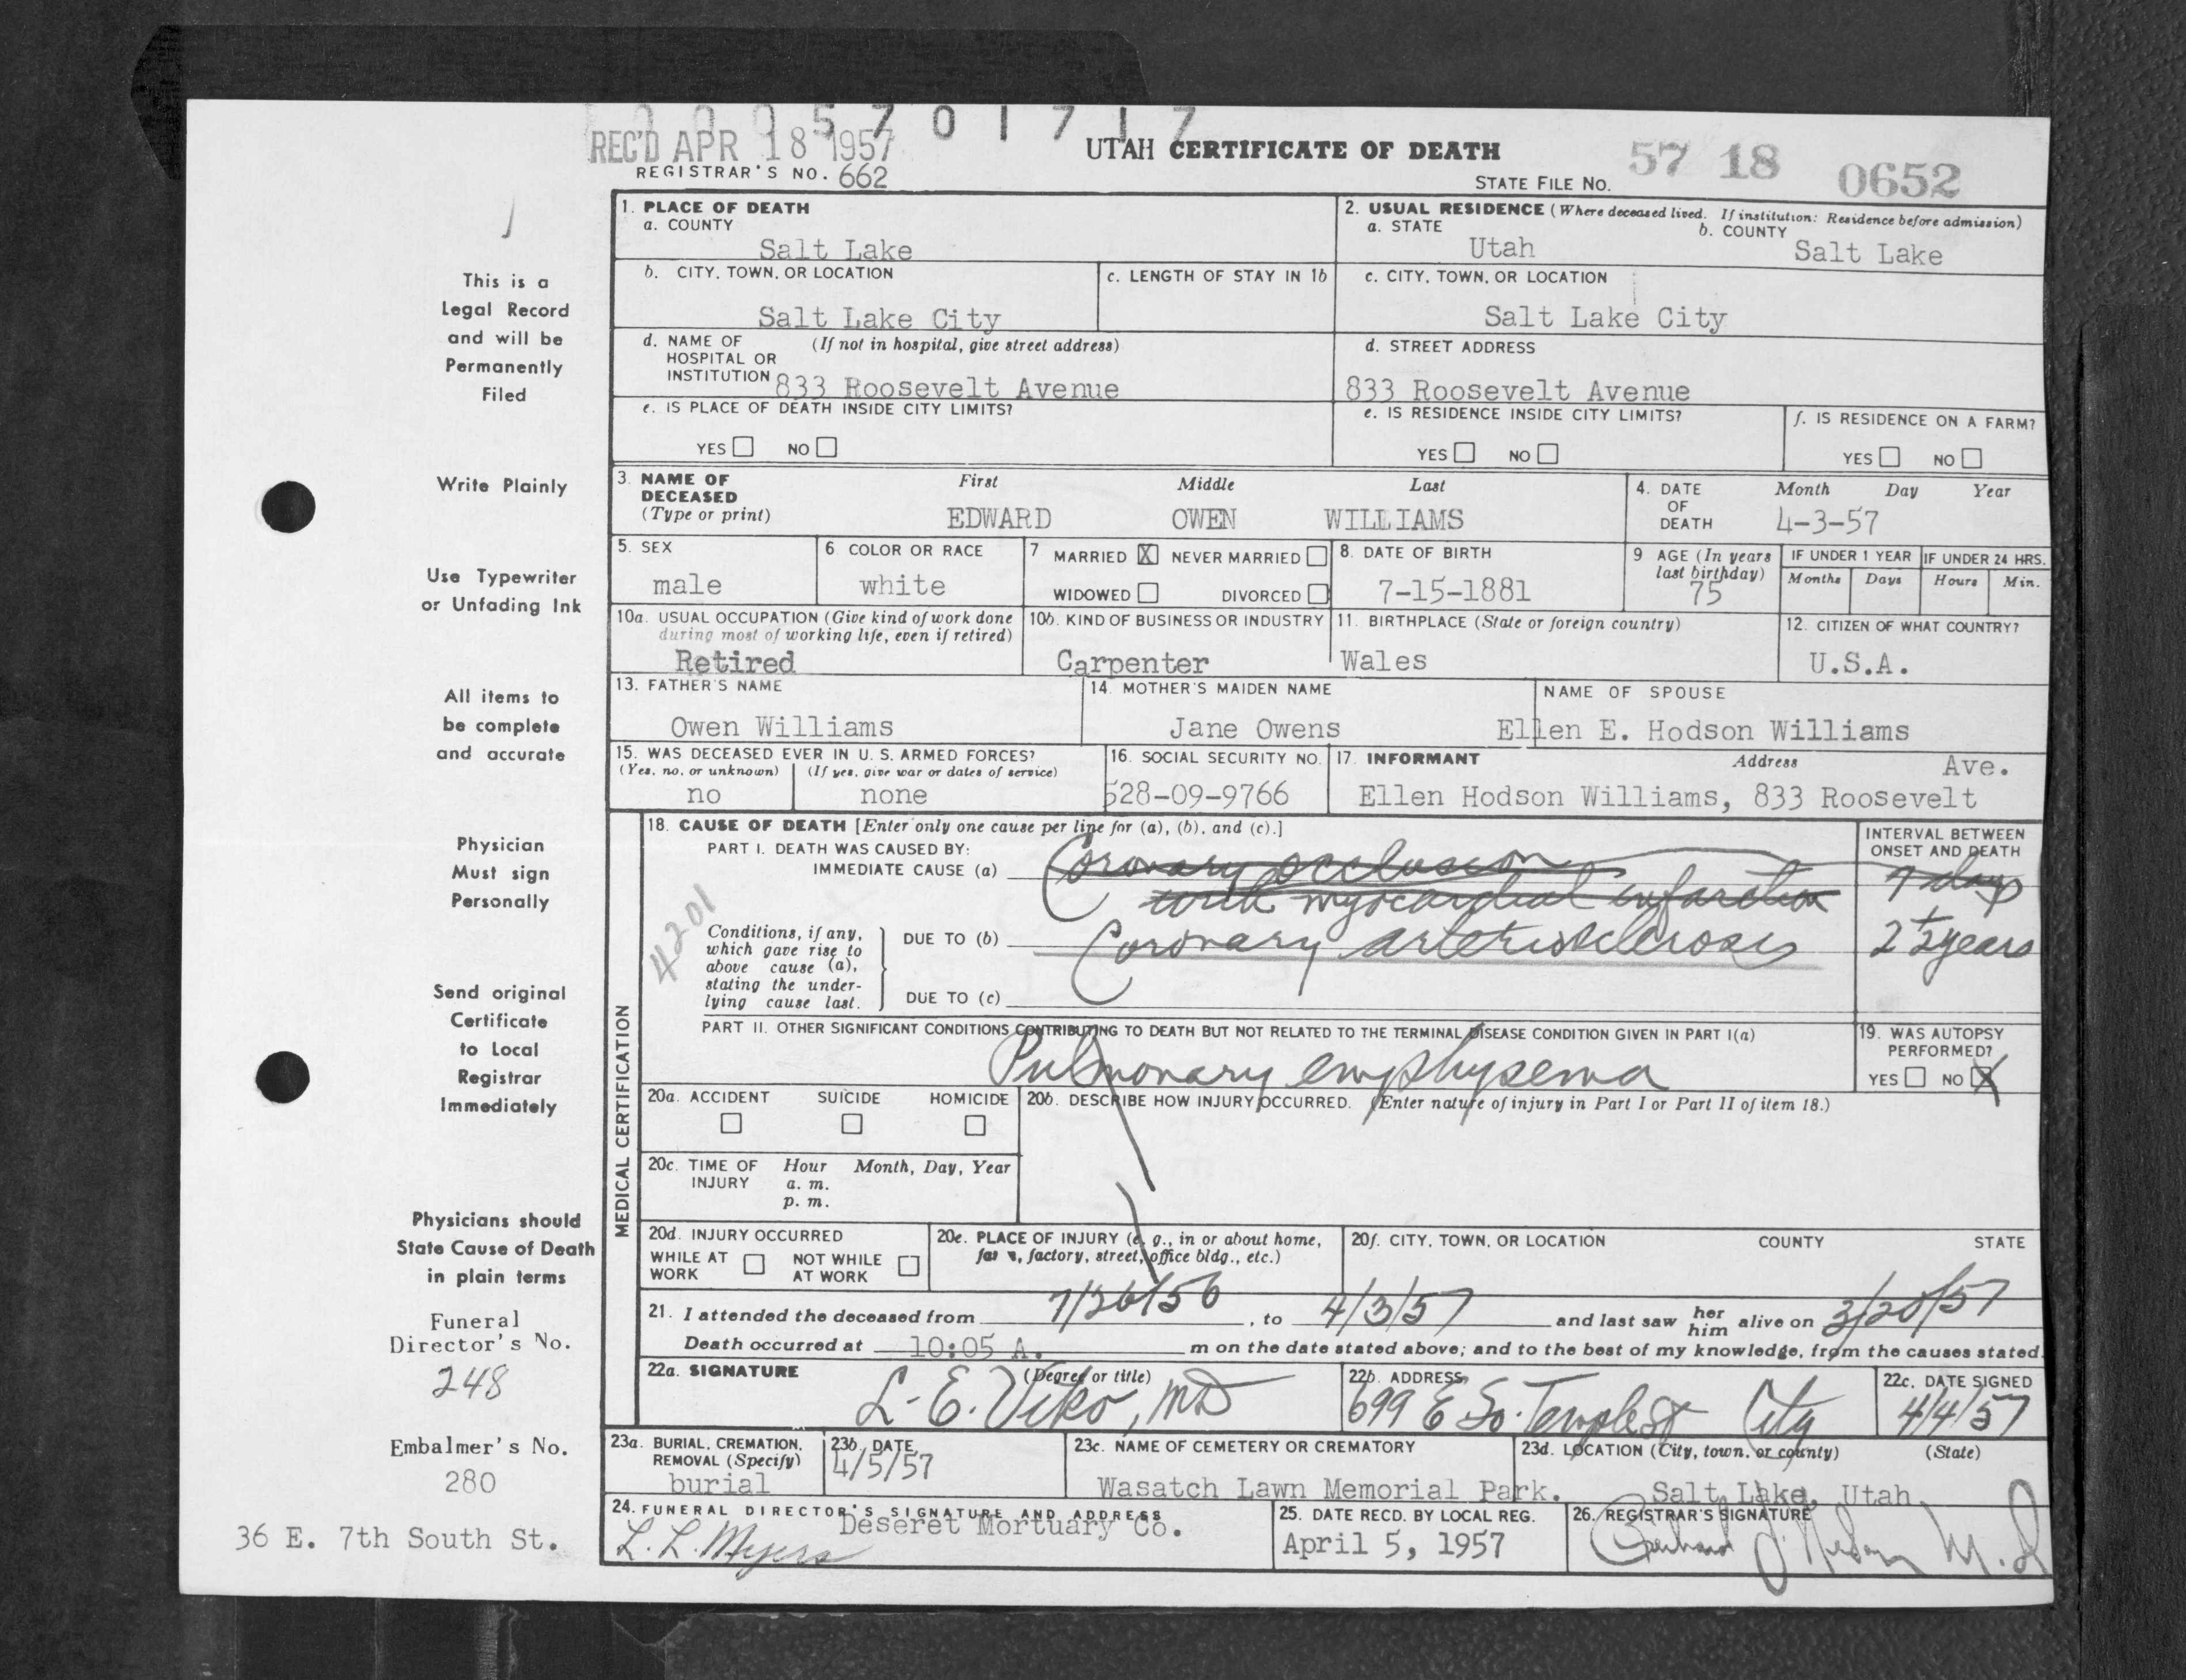 0005701717
REC'D APR 18 1957
UTAH CERTIFICATE OF DEATH
57 18 0652
REGISTRAR'S NO. 662
STATE FILE NO.
This is a
Legal Record
and will be
Permanently
Filed
Write Plainly
Use Typewriter
or Unfading Ink
All items to
be complete
and accurate
Physician
Must sign
Personally
Send original
Certificate
to Local
Registrar
Immediately
Physicians should
State Cause of Death
in plain terms
Funeral
Director's No.
248
Embalmer's No.
280
36 E. 7th South St.
1. PLACE OF DEATH
a. COUNTY
Salt Lake
2. USUAL RESIDENCE (Where deceased lived. If institution: Residence before admission)
a. STATE b. COUNTY
Utah Salt Lake
b. CITY, TOWN, OR LOCATION
Salt Lake City
c. LENGTH OF STAY IN 1b
c. CITY, TOWN, OR LOCATION
Salt Lake City
d. NAME OF (If not in hospital, give street address)
HOSPITAL OR
INSTITUTION 833 Roosevelt Avenue
d. STREET ADDRESS
833 Roosevelt Avenue
e. IS PLACE OF DEATH INSIDE CITY LIMITS?
YES NO
e. IS RESIDENCE INSIDE CITY LIMITS?
YES NO
f. IS RESIDENCE ON A FARM?
YES NO
3. NAME OF First Middle Last
DECEASED
(Type or print) EDWARD OWEN WILLIAMS
4. DATE Month Day Year
OF
DEATH 4-3-57
5. SEX
male
6 COLOR OR RACE
white
7 MARRIED X NEVER MARRIED
WIDOWED DIVORCED
8. DATE OF BIRTH
7-15-1881
9 AGE (In years
last birthday)
75
IF UNDER 1 YEAR IF UNDER 24 HRS.
Months Days Hours Min.
10a. USUAL OCCUPATION (Give kind of work done
during most of working life, even if retired)
Retired
10b. KIND OF BUSINESS OR INDUSTRY
Carpenter
11. BIRTHPLACE (State or foreign country)
Wales
12. CITIZEN OF WHAT COUNTRY?
U.S.A.
13. FATHER'S NAME
Owen Williams
14. MOTHER'S MAIDEN NAME
Jane Owens
NAME OF SPOUSE
Ellen E. Hodson Williams
15. WAS DECEASED EVER IN U. S. ARMED FORCES?
(Yes, no, or unknown) (If yes, give war or dates of service)
no none
16. SOCIAL SECURITY NO.
528-09-9766
17. INFORMANT Address Ave.
Ellen Hodson Williams, 833 Roosevelt
MEDICAL CERTIFICATION
4201
18. CAUSE OF DEATH [Enter only one cause per line for (a), (b), and (c).]
INTERVAL BETWEEN
ONSET AND DEATH
PART I. DEATH WAS CAUSED BY:
IMMEDIATE CAUSE (a) Coronary occlusion
with myocardial infarction 7 days
Conditions, if any,
which gave rise to
above cause (a),
stating the under-
lying cause last.
DUE TO (b) Coronary arteriosclerosis 2½ years
DUE TO (c)
PART II. OTHER SIGNIFICANT CONDITIONS CONTRIBUTING TO DEATH BUT NOT RELATED TO THE TERMINAL DISEASE CONDITION GIVEN IN PART I(a)
Pulmonary emphysema
19. WAS AUTOPSY
PERFORMED?
YES NO X
20a. ACCIDENT SUICIDE HOMICIDE
20b. DESCRIBE HOW INJURY OCCURRED. (Enter nature of injury in Part I or Part II of item 18.)
20c. TIME OF Hour Month, Day, Year
INJURY a. m.
p. m.
20d. INJURY OCCURRED
WHILE AT NOT WHILE
WORK AT WORK
20e. PLACE OF INJURY (e. g., in or about home,
farm, factory, street, office bldg., etc.)
20f. CITY, TOWN, OR LOCATION COUNTY STATE
21. I attended the deceased from 7/26/56, to 4/3/57 and last saw her him alive on 3/20/57
Death occurred at 10:05 A. m on the date stated above; and to the best of my knowledge, from the causes stated.
22a. SIGNATURE (Degree or title)
L. E. Viko, MD
22b. ADDRESS
699 E So. Temple St City
22c. DATE SIGNED
4/4/57
23a. BURIAL, CREMATION,
REMOVAL (Specify)
burial
23b. DATE
4/5/57
23c. NAME OF CEMETERY OR CREMATORY
Wasatch Lawn Memorial Park.
23d. LOCATION (City, town, or county) (State)
Salt Lake, Utah
24. FUNERAL DIRECTOR'S SIGNATURE AND ADDRESS
Deseret Mortuary Co.
L. L. Myers
25. DATE RECD. BY LOCAL REG.
April 5, 1957
26. REGISTRAR'S SIGNATURE
M.D.